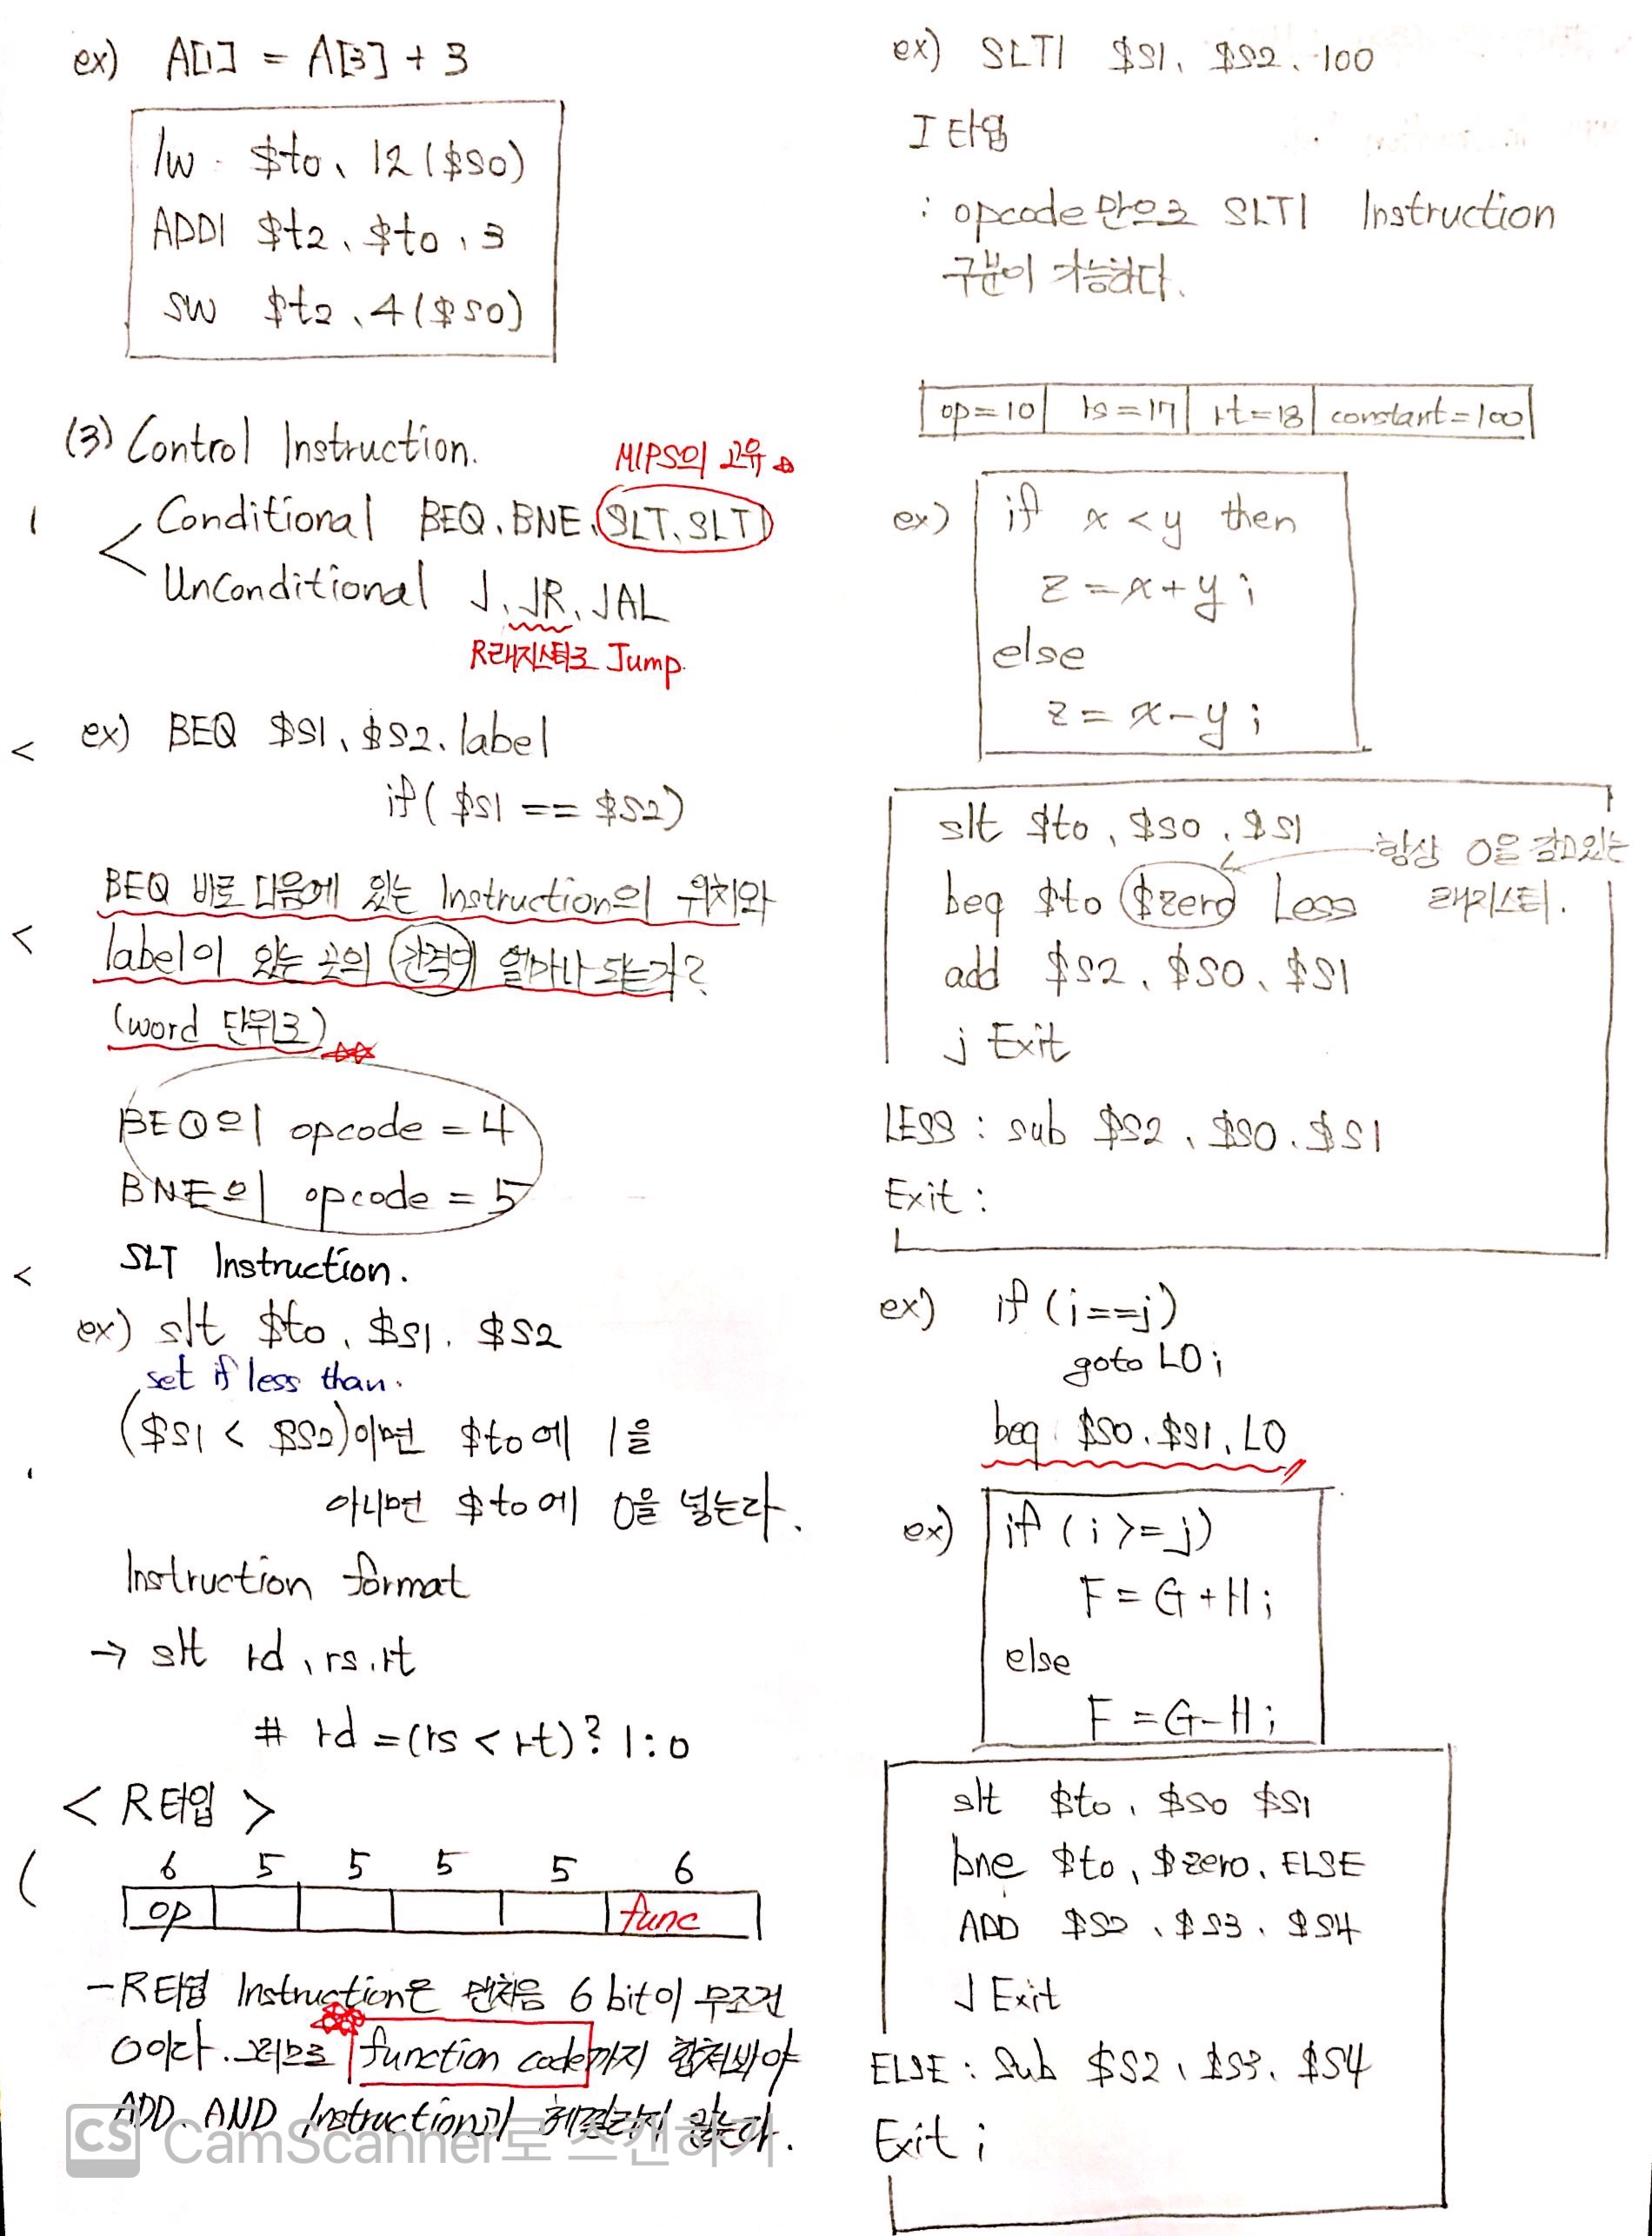 ex) A[1] = A[3] + 3
lw $t0, 12($S0)
ADDI $t2, $t0, 3
SW $t2, 4($S0)
(3) Control Instruction.
MIPS의 고유
Conditional BEQ, BNE, SLT, SLTI
UnConditional J, JR, JAL
R래지스터로 Jump.
ex) BEQ $S1, $S2, label
if( $S1 == $S2)
BEQ 바로 다음에 있는 Instruction의 위치와
label이 있는 곳의 간격이 얼마나 되는가?
(word 단위로)
BEQ의 opcode = 4
BNE의 opcode = 5
SLT Instruction.
ex) slt $t0, $S1, $S2
set if less than.
($S1 < $S2)이면 $t0에 1을
아니면 $t0에 0을 넣는다.
Instruction format
→ slt rd, rs, rt
# rd = (rs < rt)? 1:0
< R타입 >
6 5 5 5 5 6
op func
- R타입 Instruction은 맨처음 6 bit이 무조건
0이다. 그러므로 function code까지 합쳐봐야
ADD, AND Instruction과 헤깔리지 않는다.
CS CamScanner로 스캔하기
ex) SLTI $S1, $S2, 100
I 타입
: opcode만으로 SLTI Instruction
구분이 가능하다.
op=10 rs=17 rt=18 constant=100
ex) if x < y then
z = x+y;
else
z = x-y;
slt $t0, $S0, $S1
항상 0을 갖고있는
beq $t0 $zero Less
래지스터.
add $S2, $S0, $S1
j Exit
LESS : sub $S2, $S0, $S1
Exit :
ex) if (i==j)
goto L0;
beq $S0, $S1, L0
ex) if (i >= j)
F = G + H;
else
F = G-H;
slt $t0, $S0 $S1
bne $t0, $zero, ELSE
ADD $S2, $S3, $S4
J Exit
ELSE : Sub $S2, $S3, $S4
Exit ;